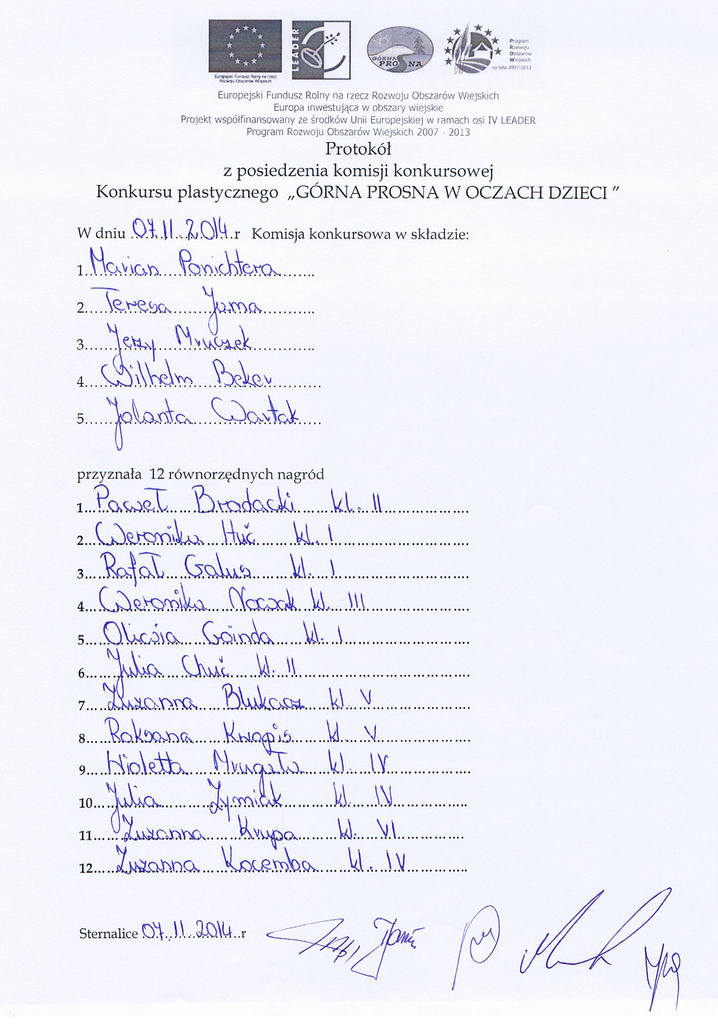 Europejski Fundusz Rolny na rzecz
Rozwoju Obszarów Wiejskich
LEADER
GÓRNA
PROSNA
Program
Rozwoju
Obszarów
Wiejskich
na lata 2007-2013
Europejski Fundusz Rolny na rzecz Rozwoju Obszarów Wiejskich
Europa inwestująca w obszary wiejskie
Projekt współfinansowany ze środków Unii Europejskiej w ramach osi IV LEADER
Program Rozwoju Obszarów Wiejskich 2007 - 2013
Protokół
z posiedzenia komisji konkursowej
Konkursu plastycznego „GÓRNA PROSNA W OCZACH DZIECI ”
W dniu 07.11.2014.r Komisja konkursowa w składzie:
1. Marian Panichtera
2. Teresa Jama
3. Jerzy Mruczek
4. Wilhelm Beker
5. Jolanta Wartak
przyznała 12 równorzędnych nagród
1. Paweł Brodacki kl. II
2. Weronika Huć kl. I
3. Rafał Galus kl. I
4. Weronika Nowak kl. III
5. Oliwia Goinda kl. I
6. Julia Chuć kl. II
7. Zuzanna Blukacz kl. V
8. Roksana Kwapis kl. V
9. Wioletta Mrugała kl. IV
10. Julia Zymiak kl. IV
11. Zuzanna Krupa kl. VI
12. Zuzanna Kocemba kl. IV
Sternalice 07.11.2014 r